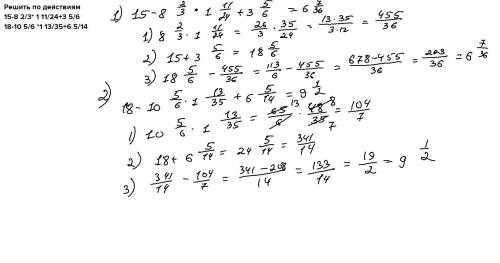 Решить по действиям
15-8 2/3* 1 11/24+3 5/6
18-10 5/6 *1 13/35+6 5/14
1) 15-8 2/3 * 1 11/24 + 3 5/6 = 6 7/36
1) 8 2/3 · 1 11/24 = 26/3 · 35/24 = 13·35/3·12 = 455/36
2) 15+3 5/6 = 18 5/6
3) 18 5/6 - 455/36 = 113/6 - 455/36 = 678-455/36 = 223/36 = 6 7/36
2) 18-10 5/6 · 1 13/35 + 6 5/14 = 9 1/2
1) 10 5/6 · 1 13/35 = 65/6 13 · 48/35 8 7 = 104/7
2) 18+6 5/14 = 24 5/14 = 341/14
3) 341/14 - 104/7 = 341-208/14 = 133/14 = 19/2 = 9 1/2